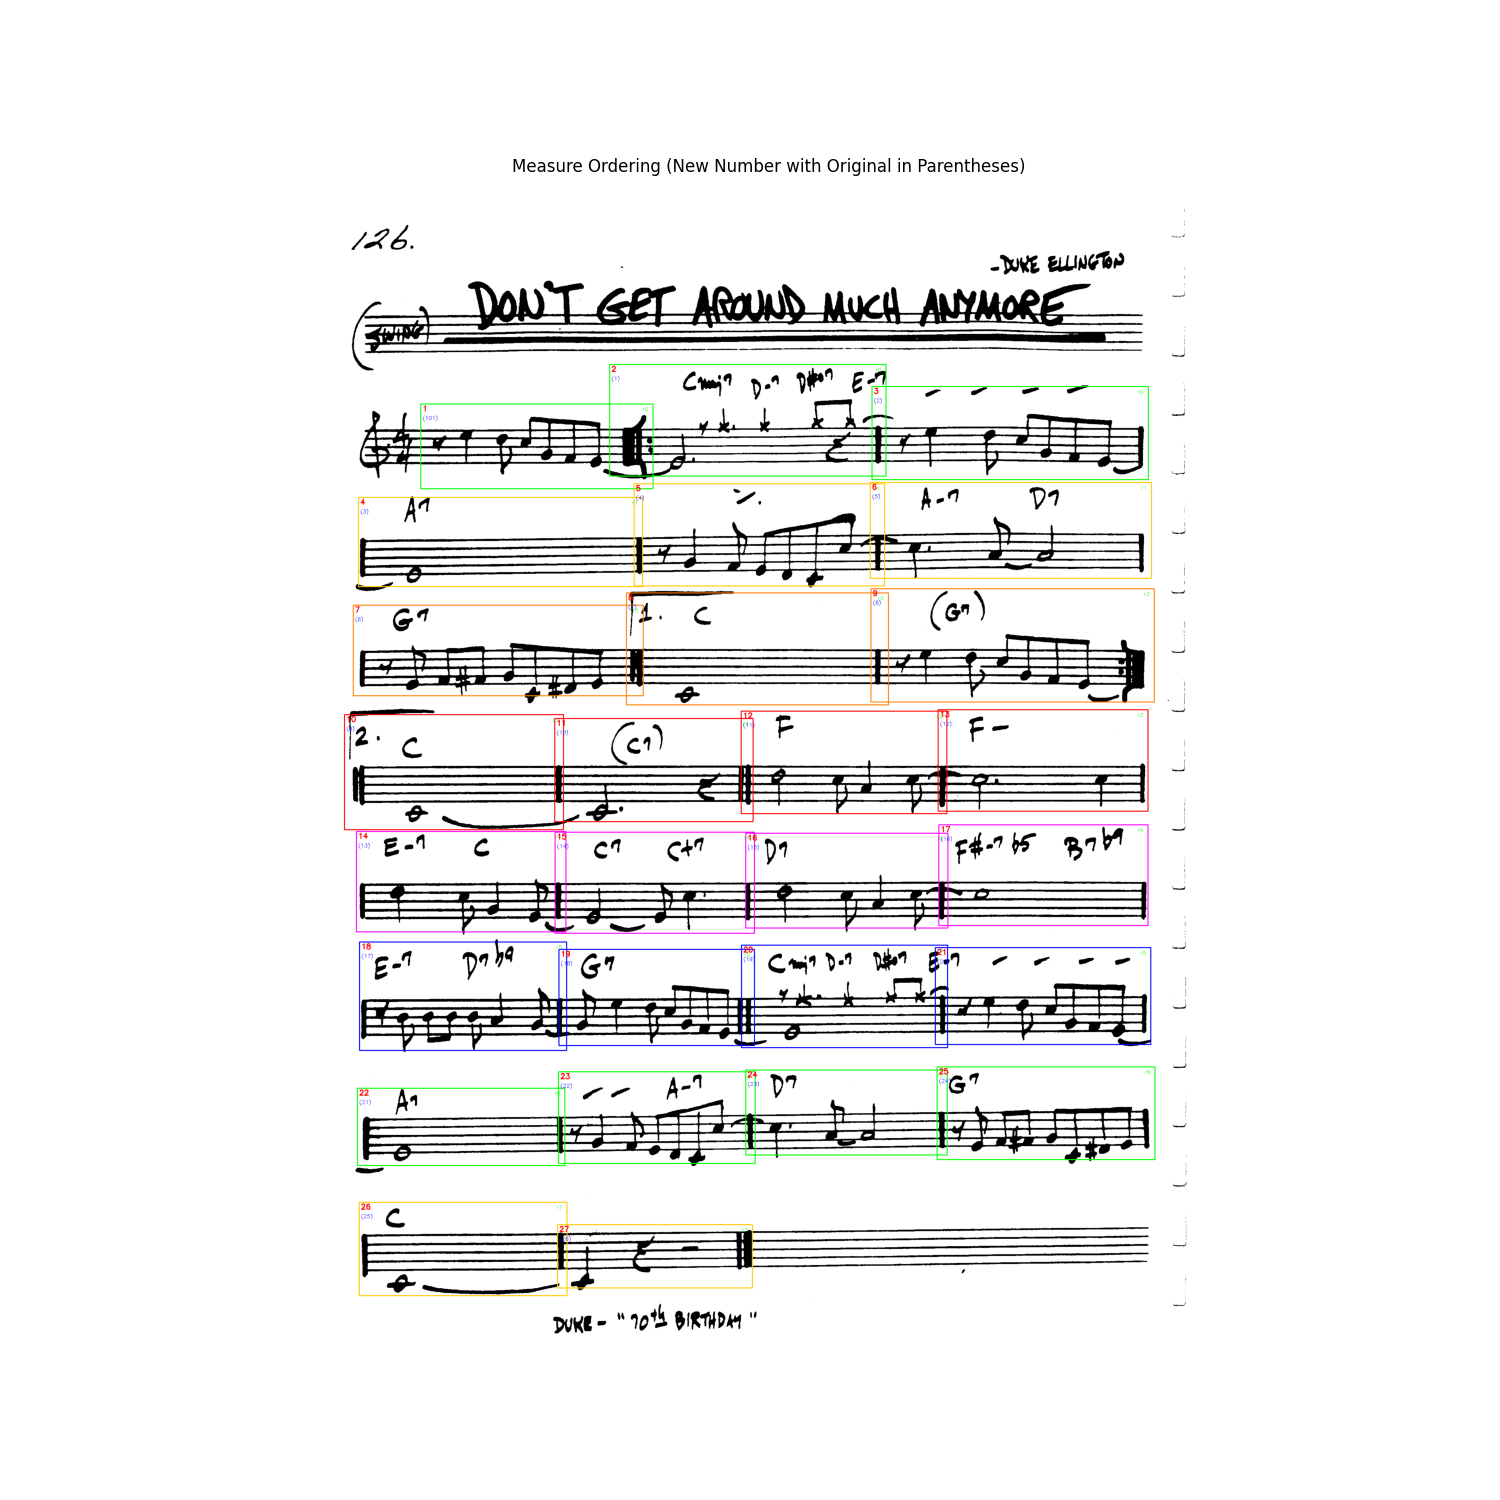 Measure Ordering (New Number with Original in Parentheses)
126.
-DUKE ELLINGTON
DON'T GET AROUND MUCH ANYMORE
(SWING)
1 (101)
2 (1) Cmaj7 D-7 D#o7 E-7
3 (2) - - - -
4 (3) A7
5 (4)
6 (5) A-7 D7
7 (6) G7
8 1. C
9 (8) (G7)
10 2. C
11 (10) (C7)
12 (11) F
13 (12) F-
14 (13) E-7 C
15 (14) C7 C+7
16 (15) D7
17 (16) F#-7 b5 B7 b9
18 (17) E-7 D7 b9
19 (18) G7
20 (19) Cmaj7 D-7 D#o7 E-7
21 - - - -
22 (21) A7
23 (22) - - A-7
24 (23) D7
25 (24) G7
26 (25) C
27
DUKE - "70th BIRTHDAY"